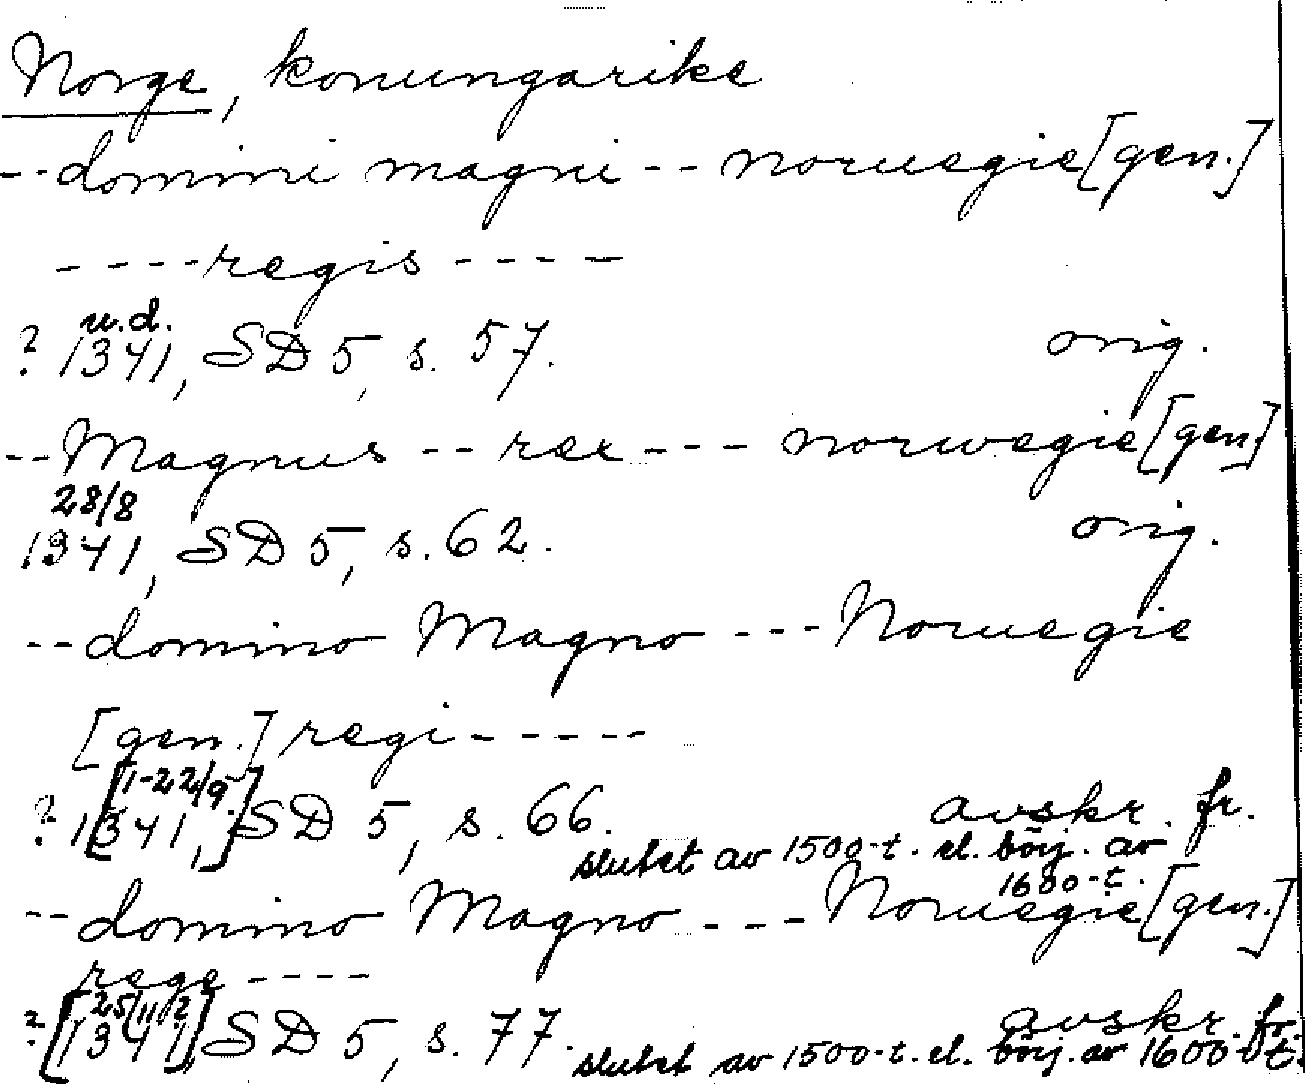 Norge, konungarike
--domini magni -- noruegie [gen.]
----regis----
u.d.
? 1341, SD 5, s. 57. orig.
--Magnus -- rex --- norwegie [gen]
28/8
1341, SD 5, s. 62. orig.
--domino Magno --- Noruegie
[gen.] regi-----
[1-22/9]
? [1341,] SD 5, s. 66. avskr. fr.
slutet av 1500-t. el. börj. av
1600-t.
--domino Magno --- Noruegie [gen.]
rege ----
25/11/2
? [1341,] SD 5, s. 77. avskr. fr.
slutet av 1500-t. el. börj. av 1600-t.